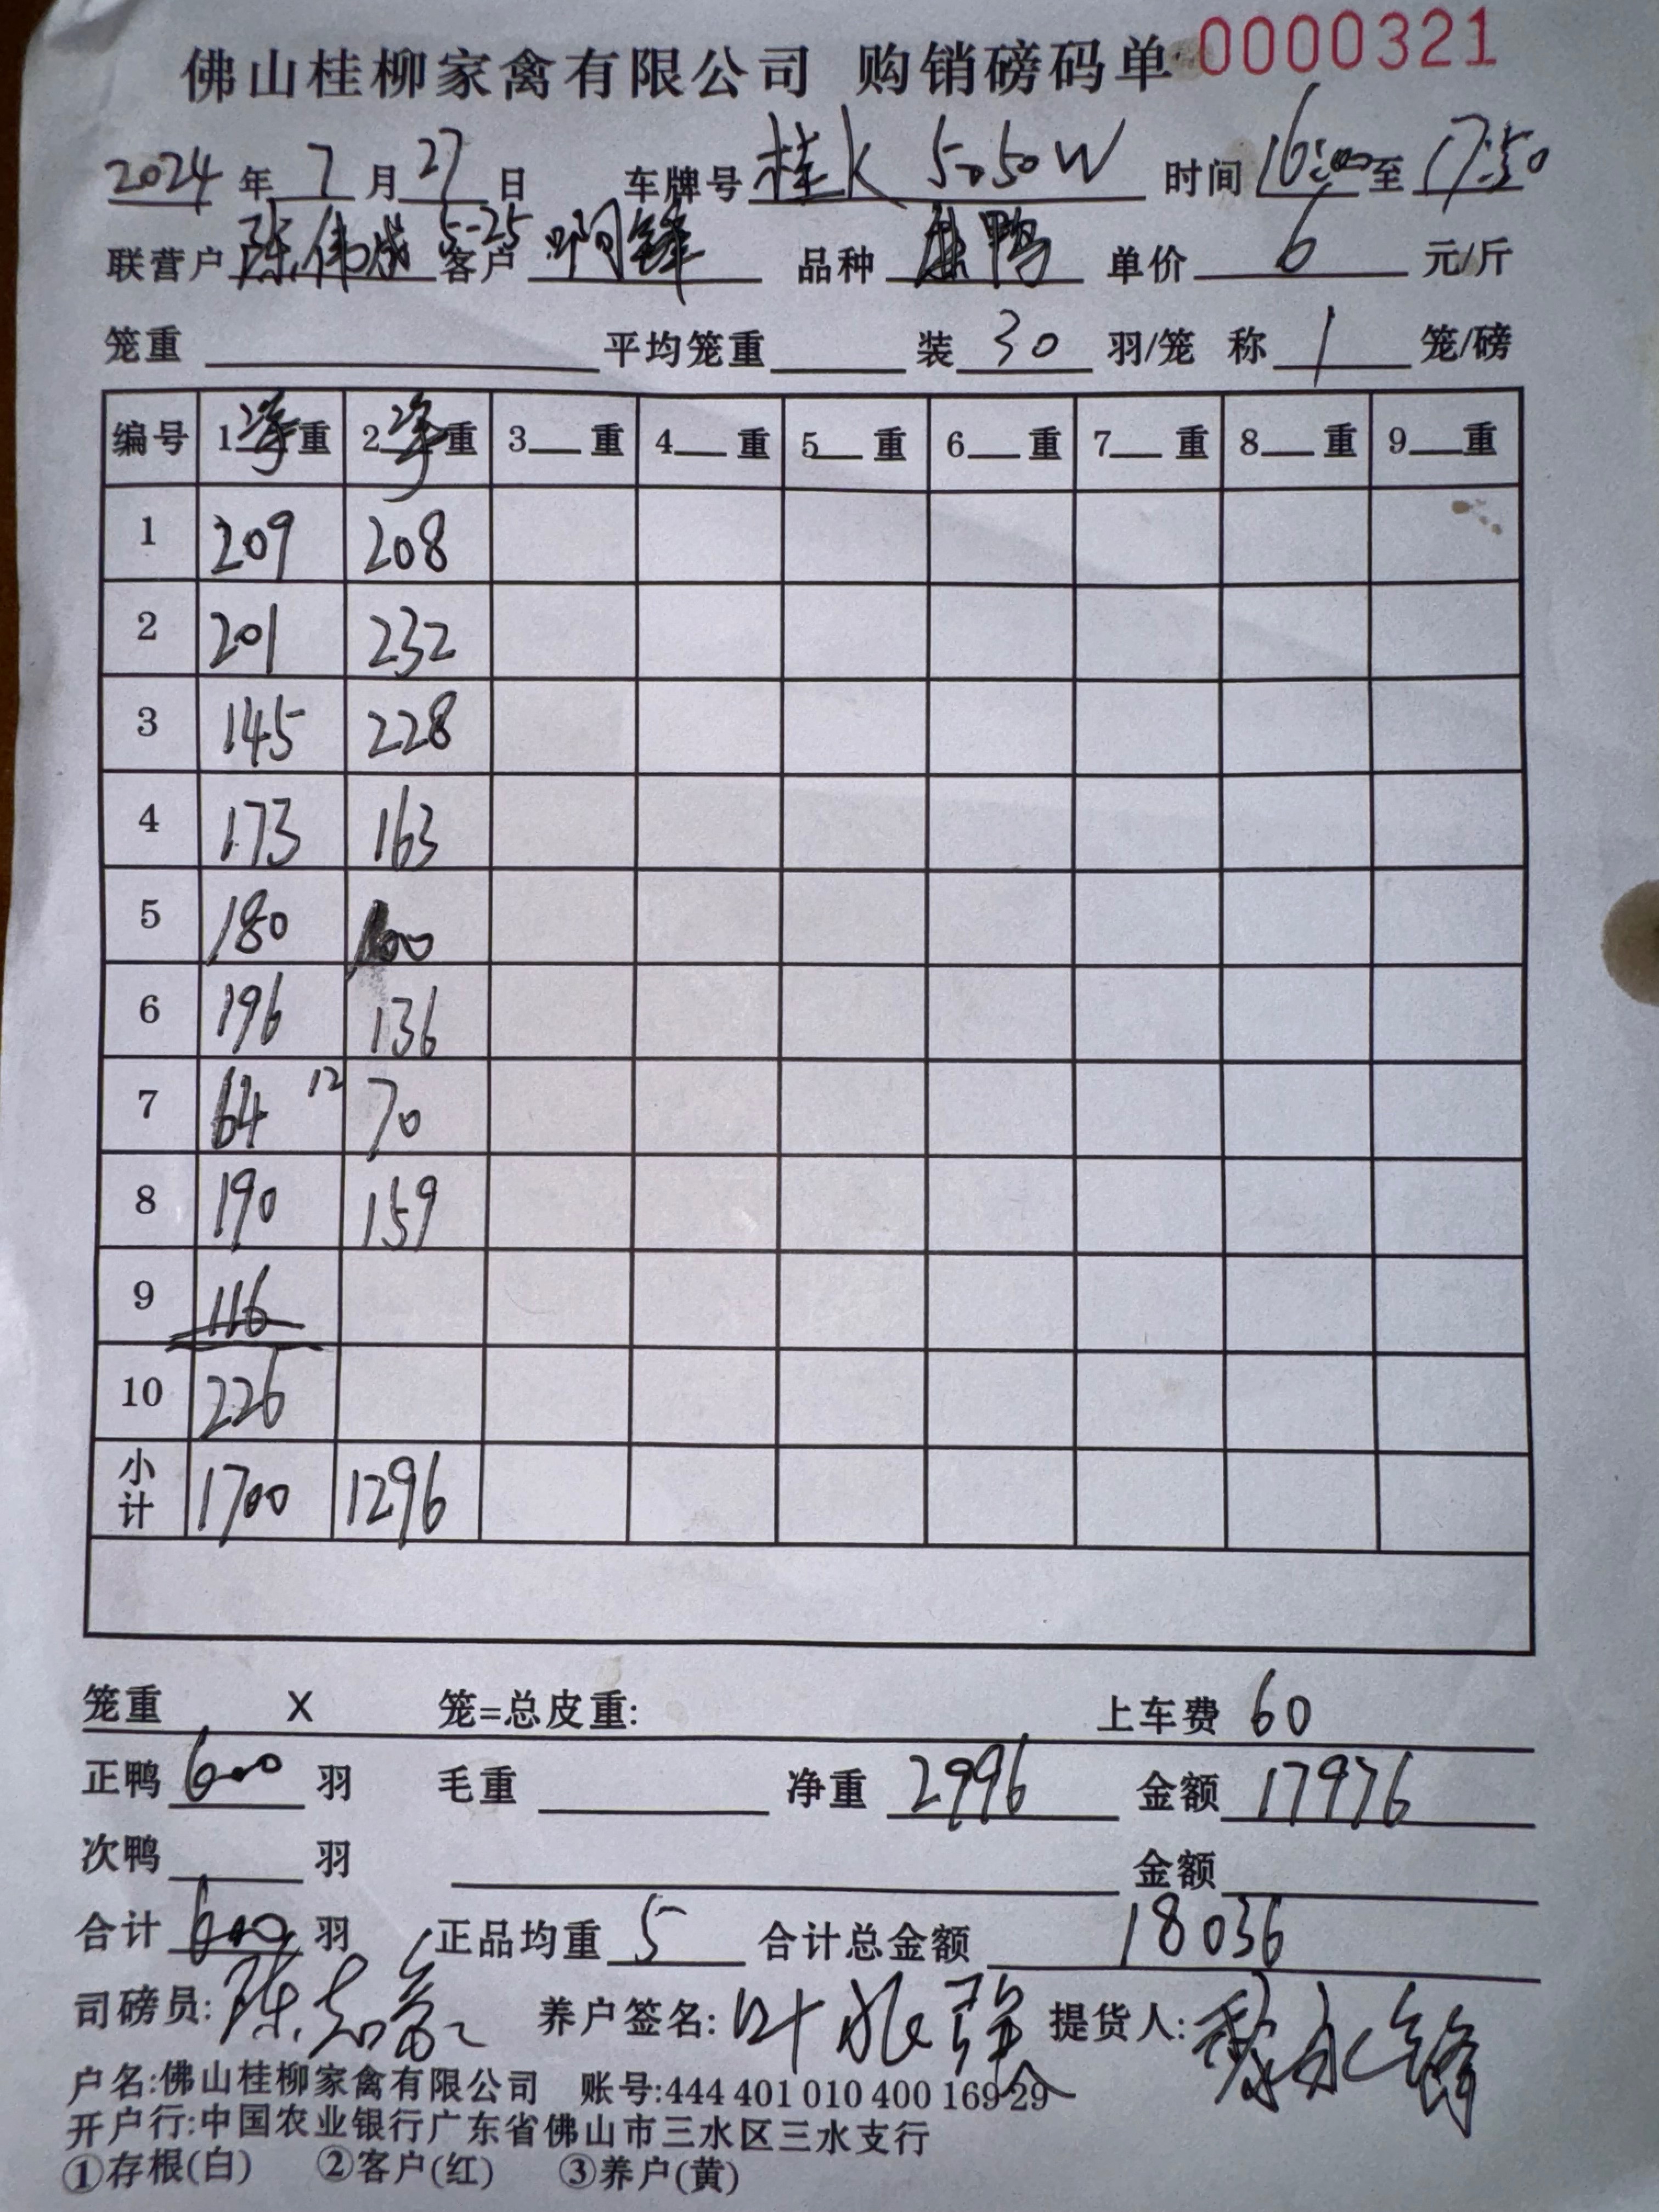 佛山桂柳家禽有限公司 购销磅码单 0000321
2024 年 7 月 27 日 车牌号 桂K 5050W 时间 16:00 至 17:50
联营户 陈伟成 5-25 客户 啊锋 品种 麻鸭 单价 6 元/斤
笼重 平均笼重 装 30 羽/笼 称 1 笼/磅
编号 1净重 2净重 3__重 4__重 5__重 6__重 7__重 8__重 9__重
1 209 208
2 201 232
3 145 228
4 173 163
5 180 100
6 196 136
7 64 12 70
8 190 159
9 116
10 226
小计 1700 1296
笼重 X 笼=总皮重: 上车费 60
正鸭 600 羽 毛重 净重 2996 金额 17976
次鸭 羽 金额
合计 600 羽 正品均重 5 合计总金额 18036
司磅员: 陈志 养户签名: 叶 提货人: 黎永锋
户名:佛山桂柳家禽有限公司 账号:444 401 010 400 169 29
开户行:中国农业银行广东省佛山市三水区三水支行
①存根(白) ②客户(红) ③养户(黄)